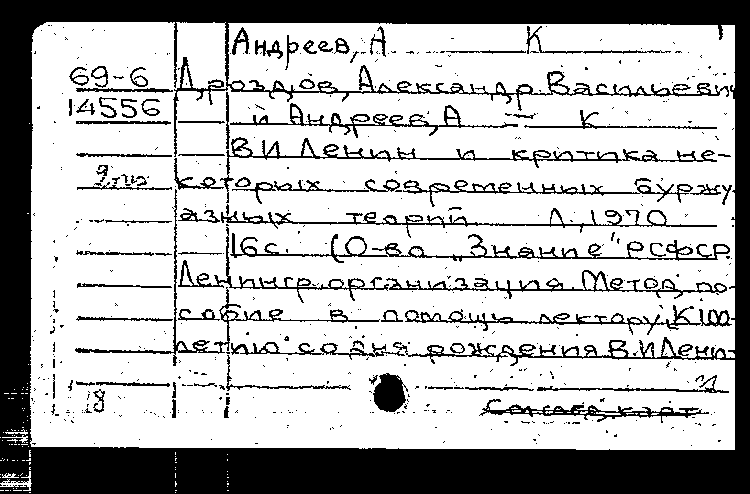 Андреев, А К
69-6 Дроздов, Александр Васильевич
14556 и Андреев, А — К
В И Ленин и критика не-
которых современных буржу
азных теорий Л., 1970
16с. (О-во „Знание" РСФСР
Ленингр. организация. Метод. по-
собие в помощь лектору. К 100-
летию со дня рождения В. И Лени-
18